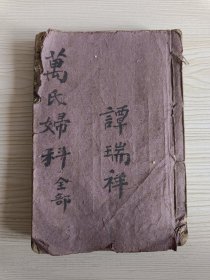 萬氏婦科全部
譚瑞祥